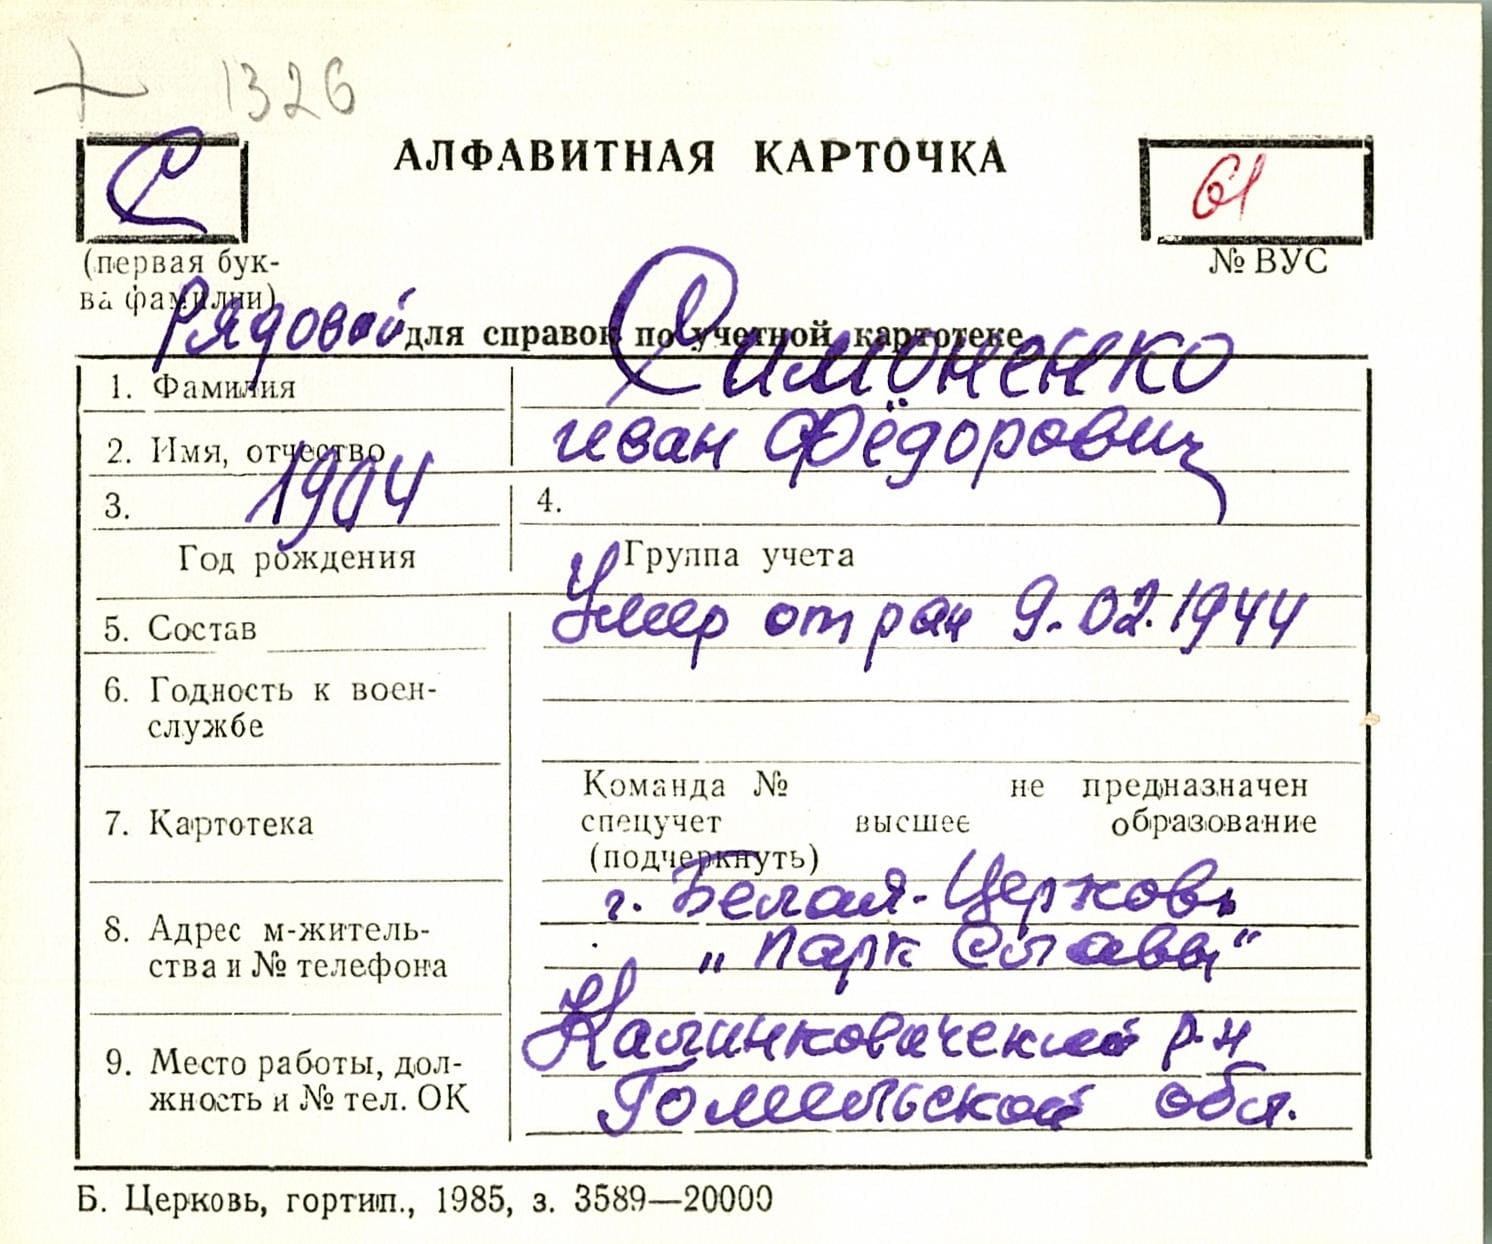 1326
АЛФАВИТНАЯ КАРТОЧКА
С
61
(первая бук-
ва фамилии)
№ ВУС
Рядовой
для справок по учетной картотеке
1. Фамилия
Симоненко
2. Имя, отчество
Иван Фёдорович
3. 1904
4.
Год рождения
Группа учета
5. Состав
Умер от ран 9.02.1944
6. Годность к воен-
службе
7. Картотека
Команда № не предназначен
спецучет высшее образование
(подчеркнуть)
8. Адрес м-житель-
ства и № телефона
г. Белая-Церковь
"Парк Славы"
9. Место работы, дол-
жность и № тел. ОК
Калинковический р-н
Гомельской обл.
Б. Церковь, гортип., 1985, з. 3589—20000